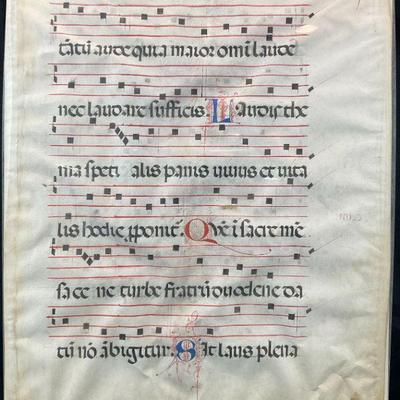 tātū aude quia maior omī laude
nec laudare sufficis. Laudis the
ma speti alis panis uiuus et uita
lis hodie ꝓponit᷑. Que ī sacre mē
sa ce ne turbe fratrū duodene da
tū nō ābigitur. Sit laus plena